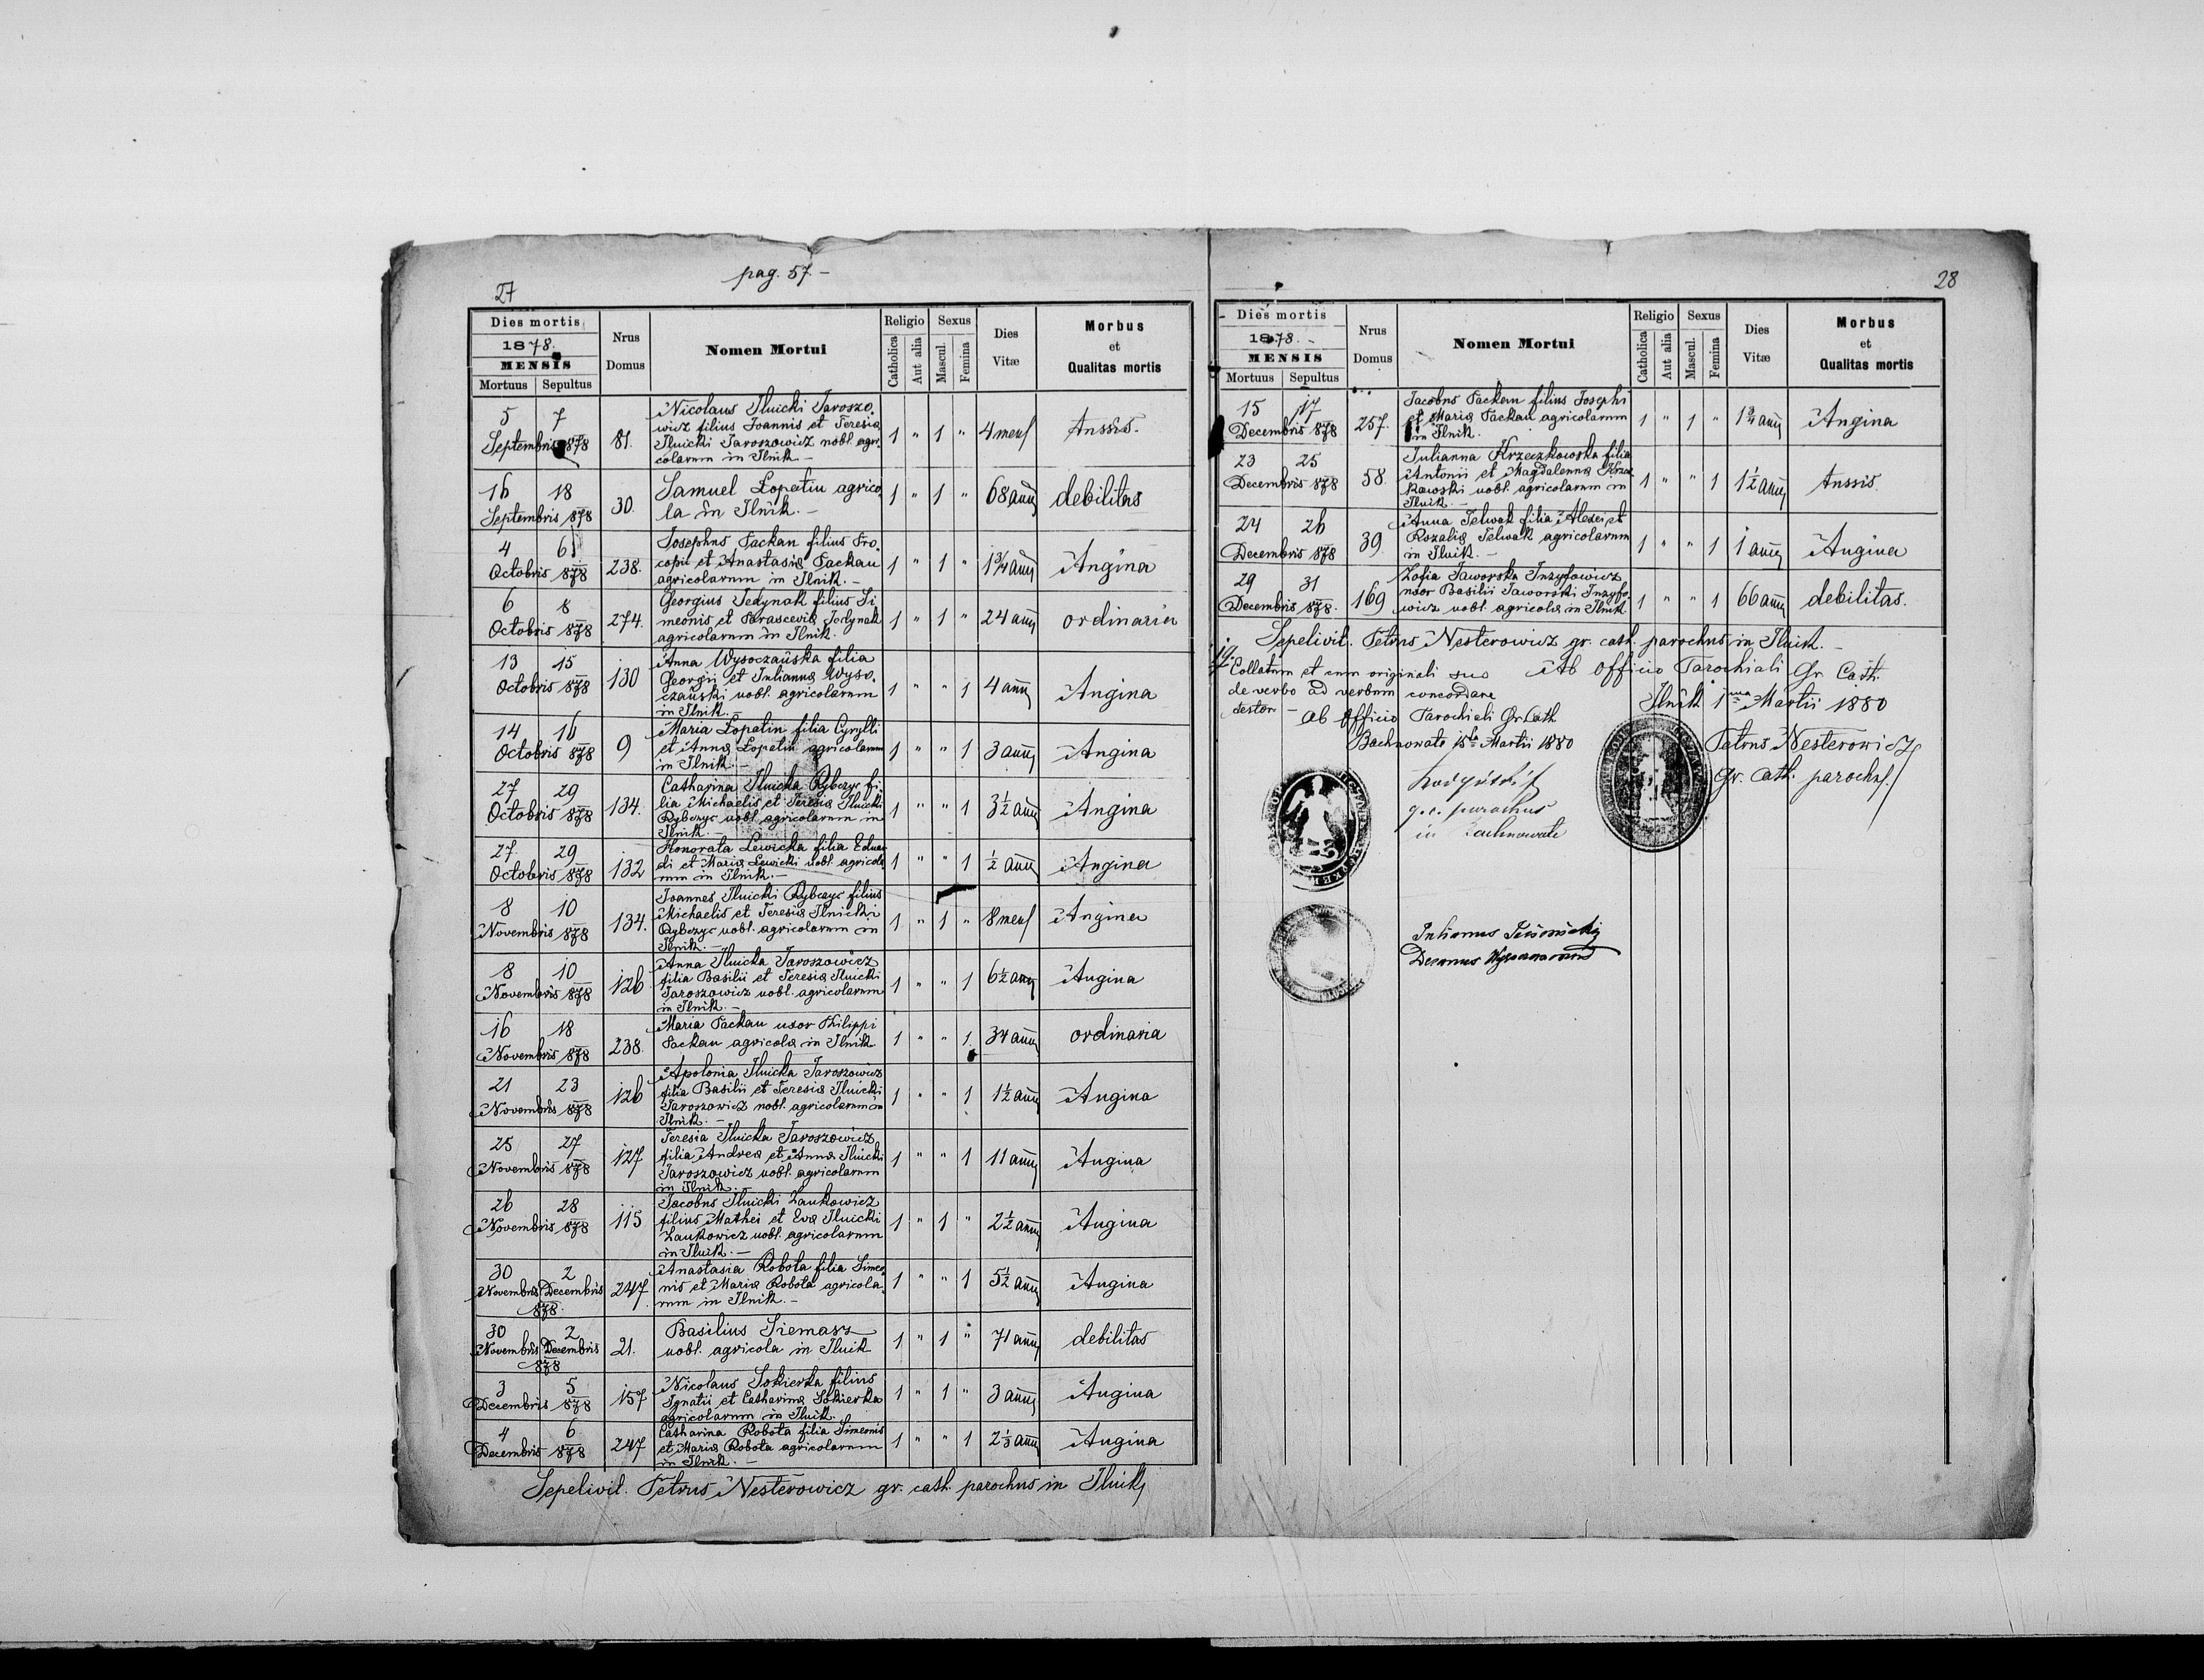 pag. 57.-
27
Dies mortis
1878.
MENSIS
Mortuus Sepultus
Nrus
Domus
Nomen Mortui
Religio
Catholica
Aut alia
Sexus
Mascul.
Femina
Dies
Vitæ
Morbus
et
Qualitas mortis
5 7
Septembris 878
81.
Nicolaus Ilnicki Jaroszo-
wicz filius Joannis et Teresia
Ilnicki Jaroszowicz nobl. agri-
colarum in Ilnik.-
1 " 1 " 4 mens Tussis.
16 18
Septembris 878
30.
Samuel Lopatin agrico
la in Ilnik.-
1 " 1 " 68 anny debilitas
4 6
Octobris 878
238.
Josephus Packan filius Pro-
copii et Anastasia Packan
agricolarum in Ilnik.-
1 " 1 " 1 3/4 anny Angina
6 8
Octobris 878
274.
Georgius Jedynak filius Si
meonis et Parascevia Jedynak
agricolarum in Ilnik.
1 " 1 " 24 anny ordinaria
13 15
Octobris 878
130
Anna Wysoczańska filia
Georgii et Julianna Wyso-
czański nobl. agricolarum
in Ilnik.-
1 " " 1 4 anny Angina
14 16
Octobris 878
9
Maria Lopatin filia Cyrylli
et Anna Lopatin agricolarum
in Ilnik.-
1 " " 1 3 anny Angina
27 29
Octobris 878
134.
Catharina Ilnicka Rybczyc fi-
lia Michaelis et Teresia Ilnicki
Rybczyc nobl. agricolarum in
Ilnik.-
1 " " 1 3 1/2 anny Angina
27 29
Octobris 878
132
Honorata Lewicka filia Eduar
di et Maria Lewicki nobl. agricola
rum in Ilnik.-
1 " " 1 1/2 anny Angina
8 10
Novembris 878
134.
Joannes Ilnicki Rybczyc filius
Michaelis et Teresia Ilnicki
Rybczyc nobl. agricolarum in
Ilnik.-
1 " 1 " 8 mens Angina
8 10
Novembris 878
126
Anna Ilnicka Jaroszowicz
filia Basilii et Teresia Ilnicki
Jaroszowicz nobl. agricolarum
in Ilnik.-
1 " " 1 6 1/2 anny Angina
16 18
Novembris 878
238.
Maria Packan uxor Philippi
Packan agricola in Ilnik
1 " " 1. 34 anny ordinaria
21 23
Novembris 878
126
Apolonia Ilnicka Jaroszowicz
filia Basilii et Teresia Ilnicki
Jaroszowicz nobl. agricolarum in
Ilnik.-
1 " " 1 1 1/2 anny Angina
25 27
Novembris 878
127
Teresia Ilnicka Jaroszowicz
filia Andrea et Anna Ilnicki
Jaroszowicz nobl. agricolarum
in Ilnik.-
1 " " 1 11 anny Angina
26 28
Novembris 878
115
Jacobus Ilnicki Zankowicz
filius Mathei et Eva Ilnicki
Zankowicz nobl. agricolarum
in Ilnik.-
1 " 1 " 2 1/2 anny Angina
30 2
Novembris Decembris
878.
247
Anastasia Robota filia Simeo
nis et Maria Robota agricola
rum in Ilnik.-
1 " " 1 5 1/2 anny Angina
30 2
Novembris Decembris
878
21.
Basilius Siemasz
nobl. agricola in Ilnik
1 " 1 " 71 anny debilitas
3 5
Decembris 878
157
Nicolaus Sokierka filius
Ignatii et Catharina Sokierka
agricolarum in Ilnik.
1 " 1 " 3 anny Angina
4 6
Decembris 878
247
Catharina Robota filia Simeonis
et Maria Robota agricolarum
in Ilnik.-
1 " " 1 2 1/3 anny Angina
Sepelivit. Petrus Nesterowicz gr. cath. parochus in Ilnik
28
Dies mortis
1878.-
MENSIS
Mortuus Sepultus
Nrus
Domus
Nomen Mortui
Religio
Catholica
Aut alia
Sexus
Mascul.
Femina
Dies
Vitæ
Morbus
et
Qualitas mortis
15 17
Decembris 878
257.
Jacobus Packan filius Josephi
et Maria Packan agricolarum
in Ilnik.
1 " 1 " 1 3/4 anny Angina
23 25
Decembris 878
58.
Julianna Krzeczkowska filia
Antonii et Magdalenna Krzecz
kowski nobl. agricolarum in
Ilnik.-
1 " " 1 1 1/2 anny Tussis
24 26
Decembris 878
39.
Anna Telwak filia Alexii et
Rozalia Telwak agricolarum
in Ilnik.-
1 " " 1 1 anny Angina
29 31
Decembris 878.
169
Zofia Jaworska Inzyfowicz
uxor Basilii Jaworski Inzyfo-
wicz nobl. agricola in Ilnik
1 " " 1 66 anny debilitas.
Sepelivit. Petrus Nesterowicz gr. cath. parochus in Ilnik.-
Collatum et cum originali suo
de verbo ad verbum concordare
testor -
Ab Officio Parochiali Gr Cath
Bachnowate Martii 1880
g.c. parochus
in Bachnowate
Ab Officio Parochiali Gr Cath.
Ilnik 1ma Martii 1880
Petrus Nesterowicz
Gr. Cath. parochus
Decanus